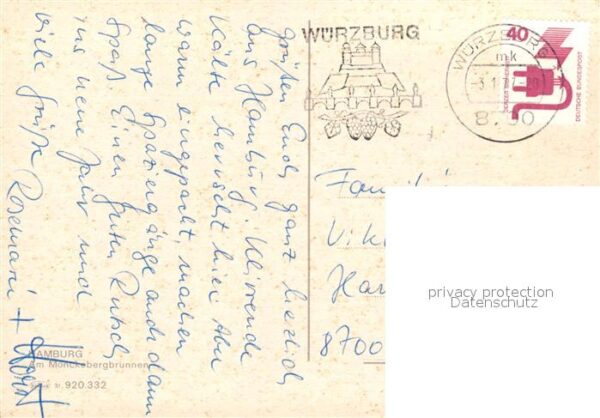 grüßen Euch ganz herzlich
aus Hamburg! Klirrende
Kälte herrscht hier. Aber
warm eingepackt, machen
lange Spaziergänge auch dann
Spaß. Einen guten Rutsch
ins neue Jahr und
viele Grüße Rosemarie +
Horst
WÜRZBURG
WÜRZBURG
mk
8700
40
DEUTSCHE BUNDESPOST
Famili
Vik
Han
8700
privacy protection
Datenschutz
HAMBURG
Am Mönckebergbrunnen
920.332